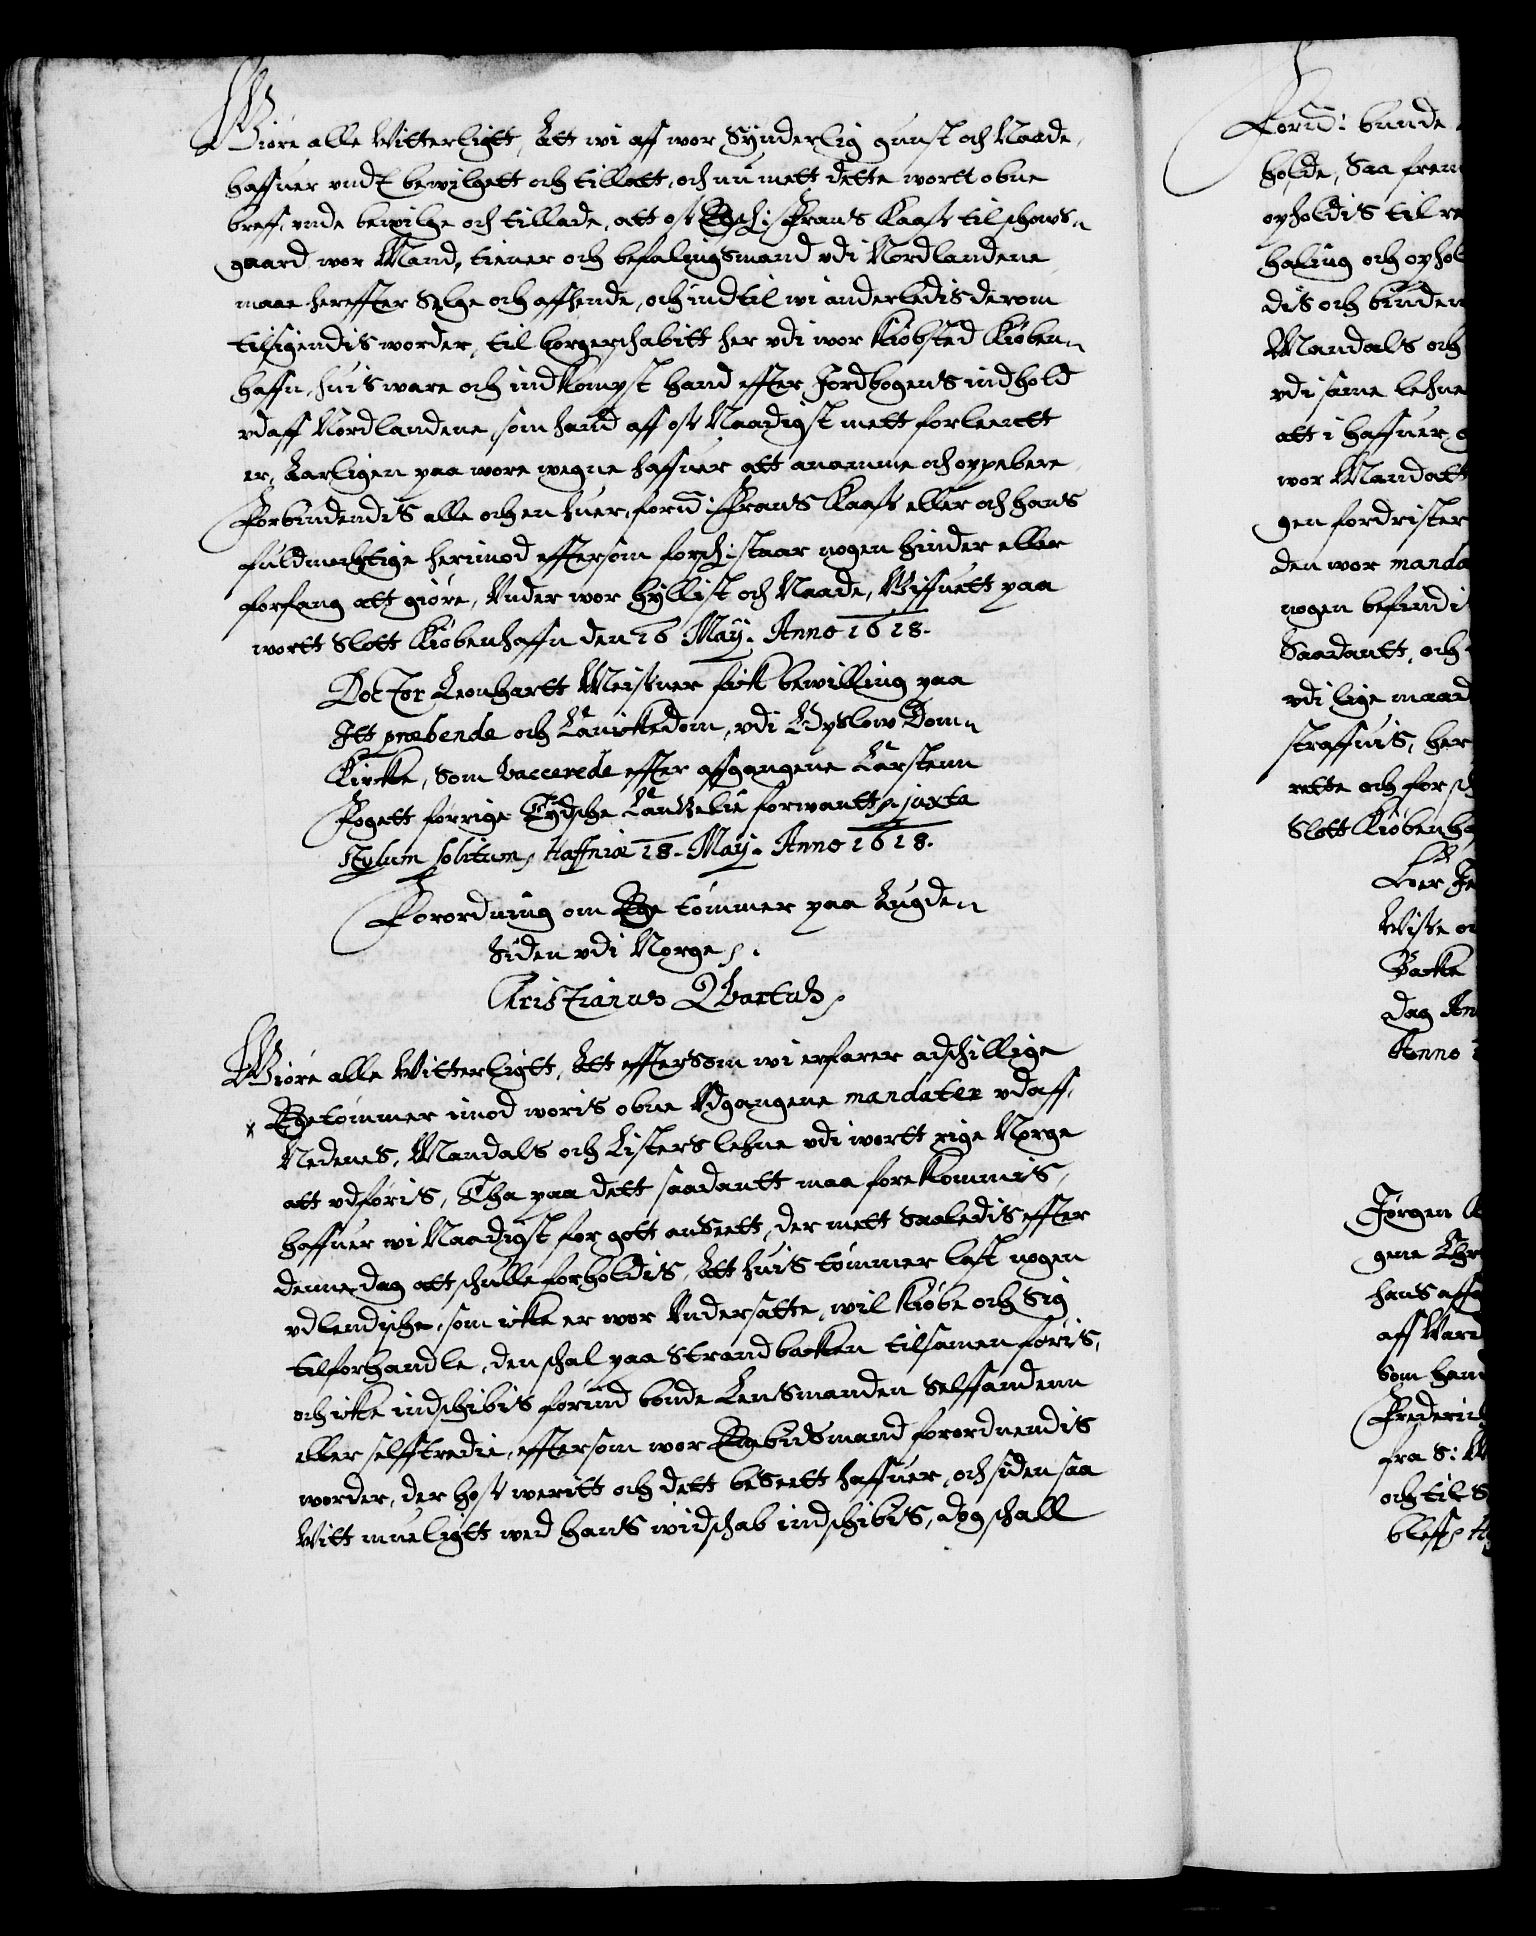 Giøre alle Witterligtt, Att wi aff wor Synderlig gunst och Naade,
haffuer undt bewilgett och tillatt, och nu mett dette wortt obne
breff, unde bewilge och tillade, att oss Elsch: Frans Kaass til
gaard wor Mand, tiener och befalingsmand udi Nordlandene
maae hereffter Selge och affhende, och indtil wi anderledis derom
tilsigendis worder, til borgerschabitt her udi wor Kiøbsted Kiøben-
haffn, huis ware och indkompst hand effter Jordbogens indhold
udaff Nordlandene, som hand aff oss Naadigst mett forleentt
er, Aarligen paa wore wegne haffuer att anamme och oppebere
Forbindendis alle och en huer, forñ: Frans Kaass eller och hans
fuldmechtige herimod effterson forsch: staar nogen hinder eller
forfang att giøre, Under wor Hyllist och Naade, Giffuett paa
wortt Slott Kiøbenhaffn den 16 Maÿ. Anno 1618.
Doctor Leonhartt Meisner fick bewilling paa
Itt præbende och Canickedom, udi Opslow Dom-
Kircke, Som vaccerede effter affgangene Carstenn
Fogett forrige Tydsche Cantzelie forwantt, juxta
stylum solitum, Haffniæ 18. Maÿ. Anno 1618.
Forordning om Ege tømmer paa Augde
Siden udi Norge.
Christianus Qvartus,
Giøre alle Witterligtt, Att effterson wi erfarer adschillige
Egetømmer imod woris obne Udgangene mandater udaff,
Nedenes, Mandals och Listers lehne udi wortt rige Norge
att udføris, Tha paa dett saadantt maa forekommis,
haffuer wi Naadigst for gott anseett, der mett Saaledis effter
denne dag att schulle forholdis, Att huis tømmer last nogen
udlendische, som icke er wor Undersatte, wil Kiøbe och Sig
tilforhandle, den schal paa Strandbacken tilsamen føris,
och icke indschibis førind bonde Lensmanden Selffandenn
eller selfftredie, effterson wor Egebudsmand forordnendis
worder, der hoss weritt och dett beseett haffuer, och siden saa
Witt mueligtt wed hans widschab indschibis, dog schall
Forñ: bunde
holde, Saa frem
opholdis til re
haling och ophol
dis och binden
Mandals och
udi same lehne
att i haffuer
wor Mandatt
gen fordrister
den wor manda
nogen befindi
Saadantt, och
udi lige maad
straffuis, her
rette och for sch
Slott Kiøbenha
Her Je
Wiste o
Backe
dag An
Anno
Jørgen
gene Chr
hans affg
aff Vard
Som hand
Frederich
fra S:
och til S
bleff, H